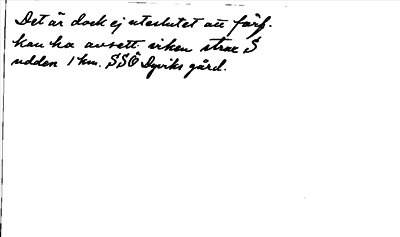 Det är dock ej uteslutet att förf.
kan ha avsett viken strax S
udden 1 km. SSÖ Dyviks gård.